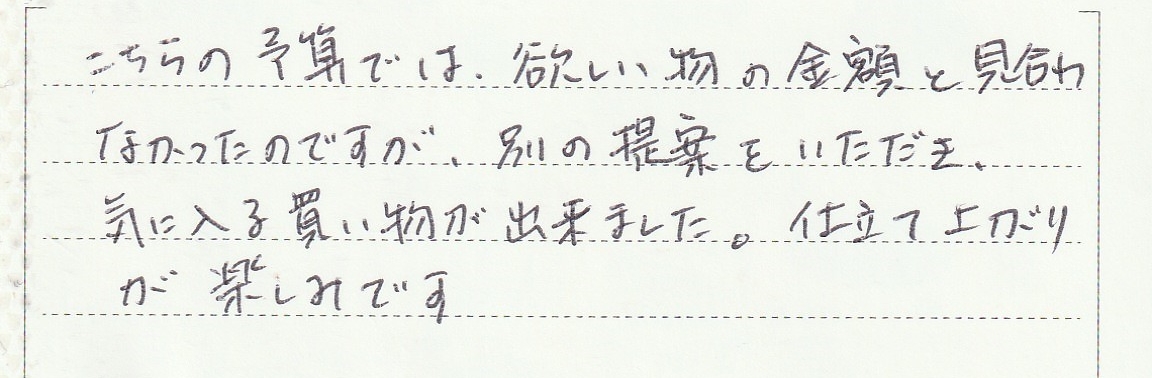 こちらの予算では、欲しい物の金額と見合わ
なかったのですが、別の提案をいただき、
気に入る買い物が出来ました。仕立て上がり
が楽しみです